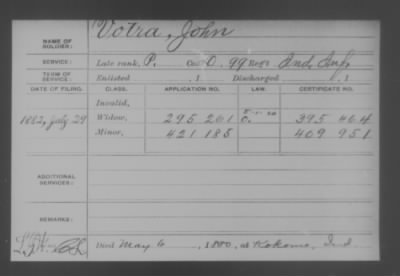 NAME OF SOLDIER: Votra, John
SERVICE: Late rank, P. Co. D. 99 Reg't Ind. Inf.
TERM OF SERVICE: Enlisted , 1 Discharged , 1
DATE OF FILING. CLASS. APPLICATION NO. LAW. CERTIFICATE NO.
Invalid,
1882, July 29 Widow, 295 201 395 464
Minor, 421 185 409 951
ADDITIONAL SERVICES:
REMARKS:
Died May 6, 1880, at Kokomo, Ind.